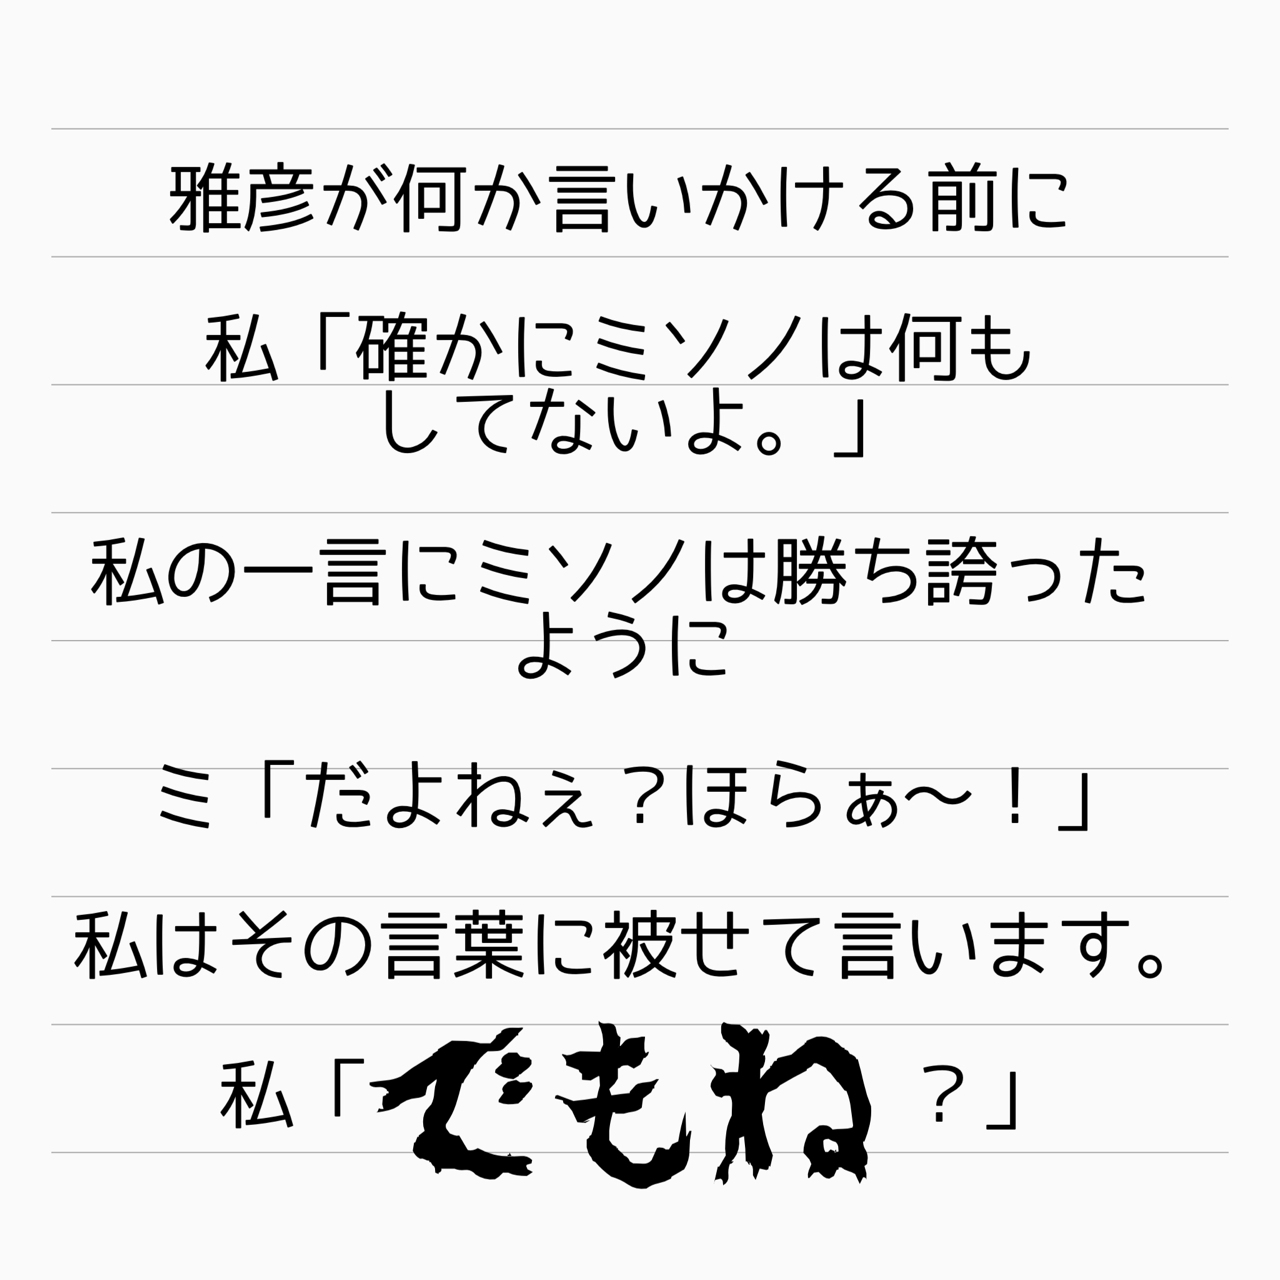 雅彦が何か言いかける前に
私「確かにミソノは何も
してないよ。」
私の一言にミソノは勝ち誇った
ように
ミ「だよねぇ？ほらぁ〜！」
私はその言葉に被せて言います。
私「でもね？」